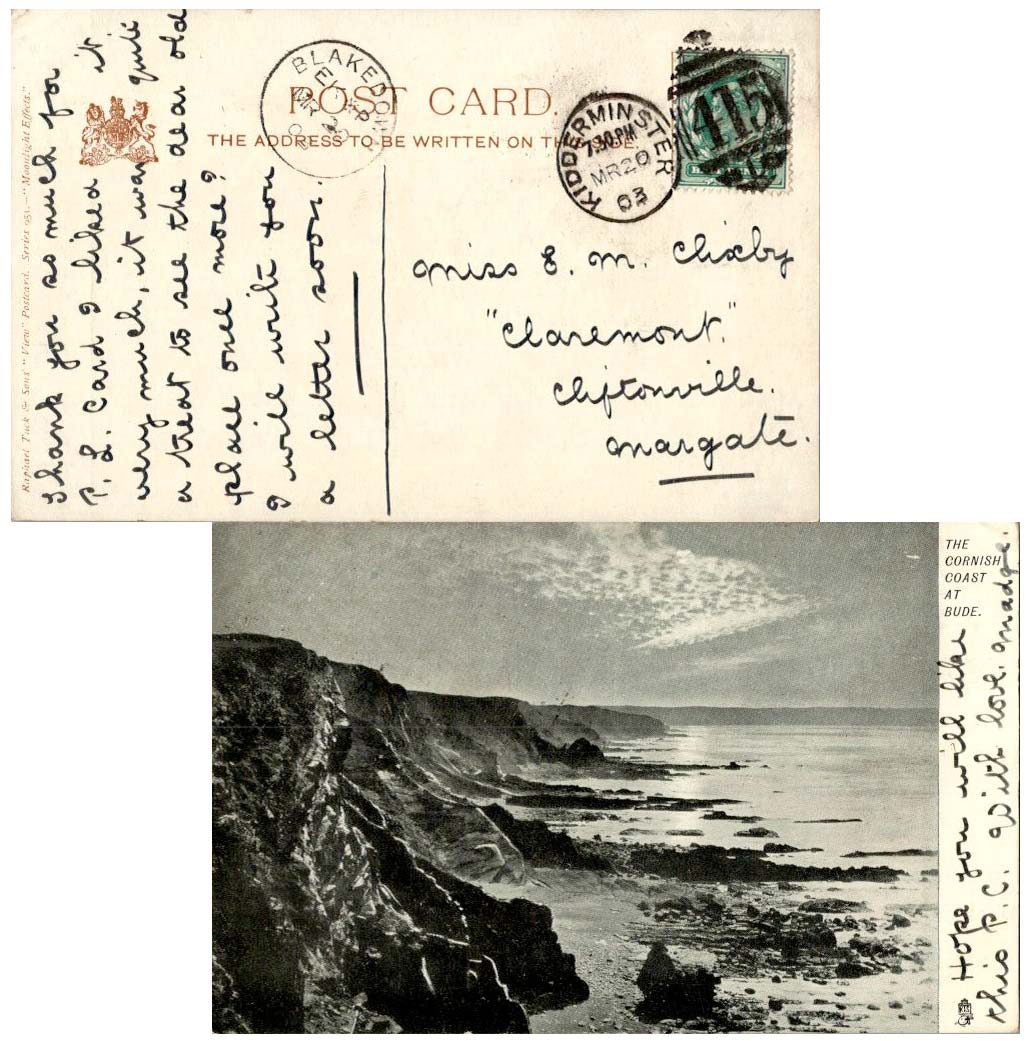 POST CARD.
THE ADDRESS TO BE WRITTEN ON THIS SIDE.
Raphael Tuck & Sons' "View" Postcard. Series 951.—"Moonlight Effects."
BLAKEDOWN
MR
KIDDERMINSTER
7.30 PM
MR 20
03
415
Thank you so much for
P. L. Card I liked it
very much, it was quite
a treat to see the dear old
place once more?
I will write you
a letter soon.
Miss E. M. Clixby
"Claremont."
Cliftonville.
Margate.
THE
CORNISH
COAST
AT
BUDE.
Hope you will like
this P.C. With love. Madge.